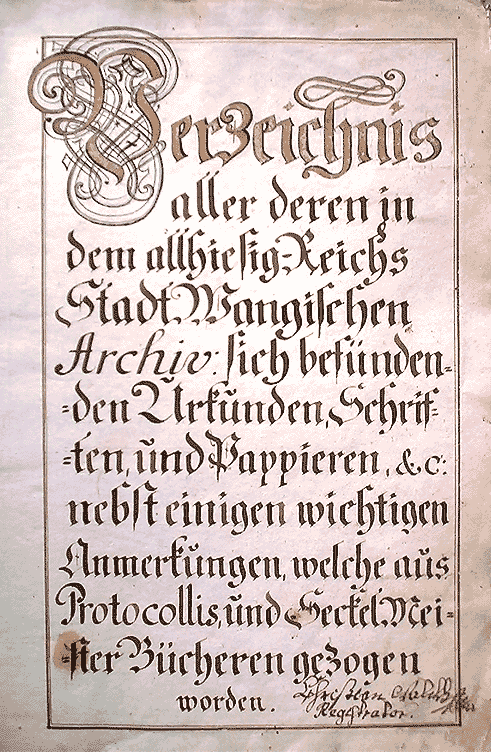 Verzeichnis
aller deren in
dem allhiesig-Reichs
Stadt Wangischen
Archiv: sich befünden-
-den Urkunden, Schrif-
-ten, und Pappieren, &c:
nebst einigen wichtigen
Anmerkungen, welche aus
Protocollis, und Seckel Mei-
-ster Bücheren gezogen
worden.
Christian
Registrator.